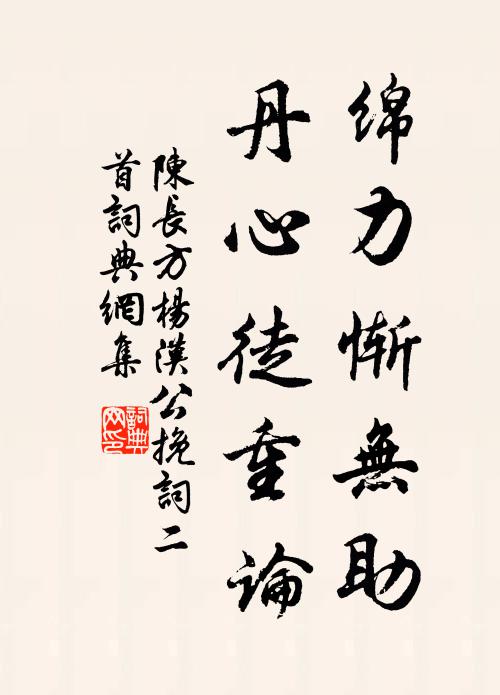 綿力慚無助
丹心徒重論
陳長方楊漢公挽詞二
首詞典網集
詞典
网印